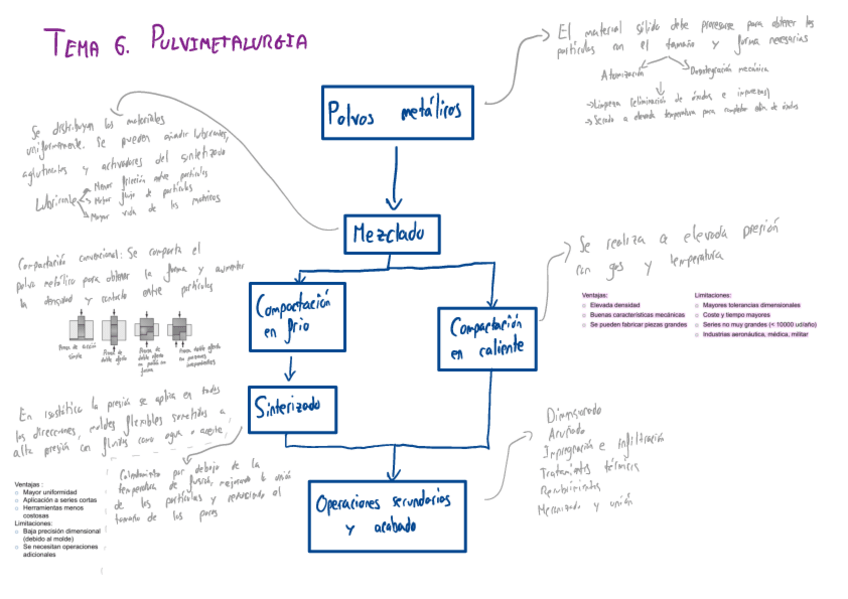 TEMA 6. PULVIMETALURGIA
El material sólido debe procesarse para obtener las
partículas con el tamaño y forma necesarias
Atomización
Desintegración mecánica
→ Limpieza (eliminación de óxidos e impurezas)
→ Secado a elevada temperatura para completar elim. de óxidos
Polvos metálicos
Se distribuyen los materiales
uniformemente. Se pueden añadir lubricantes,
aglutinantes y activadores del sinterizado
Lubricante
Menor fricción entre partículas
Mayor flujo de partículas
Mayor vida de las matrices
Mezclado
Se realiza a elevada presión
con gas y temperatura
Ventajas:
Elevada densidad
Buenas características mecánicas
Se pueden fabricar piezas grandes
Limitaciones:
Mayores tolerancias dimensionales
Coste y tiempo mayores
Series no muy grandes (< 10000 ud/año)
Industrias aeronáutica, médica, militar
Compactación convencional: Se compacta el
polvo metálico para obtener la forma y aumentar
la densidad y contacto entre partículas
Compactación
en frio
Compactación
en caliente
Prensa de acción
simple
Prensa de
doble efecto
Prensa de
doble efecto
Prensa doble efecto
En isostática la presión se aplica en todas
las direcciones, moldes flexibles sometidos a
alta presión con fluidos como agua o aceite,
Sinterizado
Calentamiento por debajo de la
temperatura de fusión, mejorando la unión
de las partículas y reduciendo el
tamaño de los poros
Ventajas :
Mayor uniformidad
Aplicación a series cortas
Herramientas menos
costosas
Limitaciones:
Baja precisión dimensional
(debido al molde)
Se necesitan operaciones
adicionales
Operaciones secundarias
y acabado
Dimensionado
Acuñado
Impregnación e infiltración
Tratamientos térmicos
Recubrimientos
Mecanizado y unión